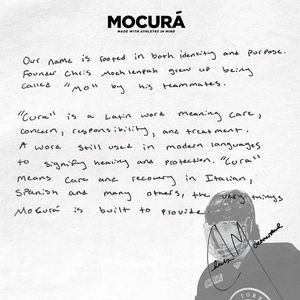 MOCURÁ
MADE WITH ATHLETES IN MIND
Our name is rooted in both identity and purpose.
Founder Chris Moehlenpah grew up being
called "MO" by his teammates.
"Cura" is a Latin word meaning care,
concern, responsibility, and treatment.
A word still used in modern languages
to signify healing and protection. "Cura"
means care and recovery in Italian,
Spanish and many others, the very things
MoCurá is built to provide